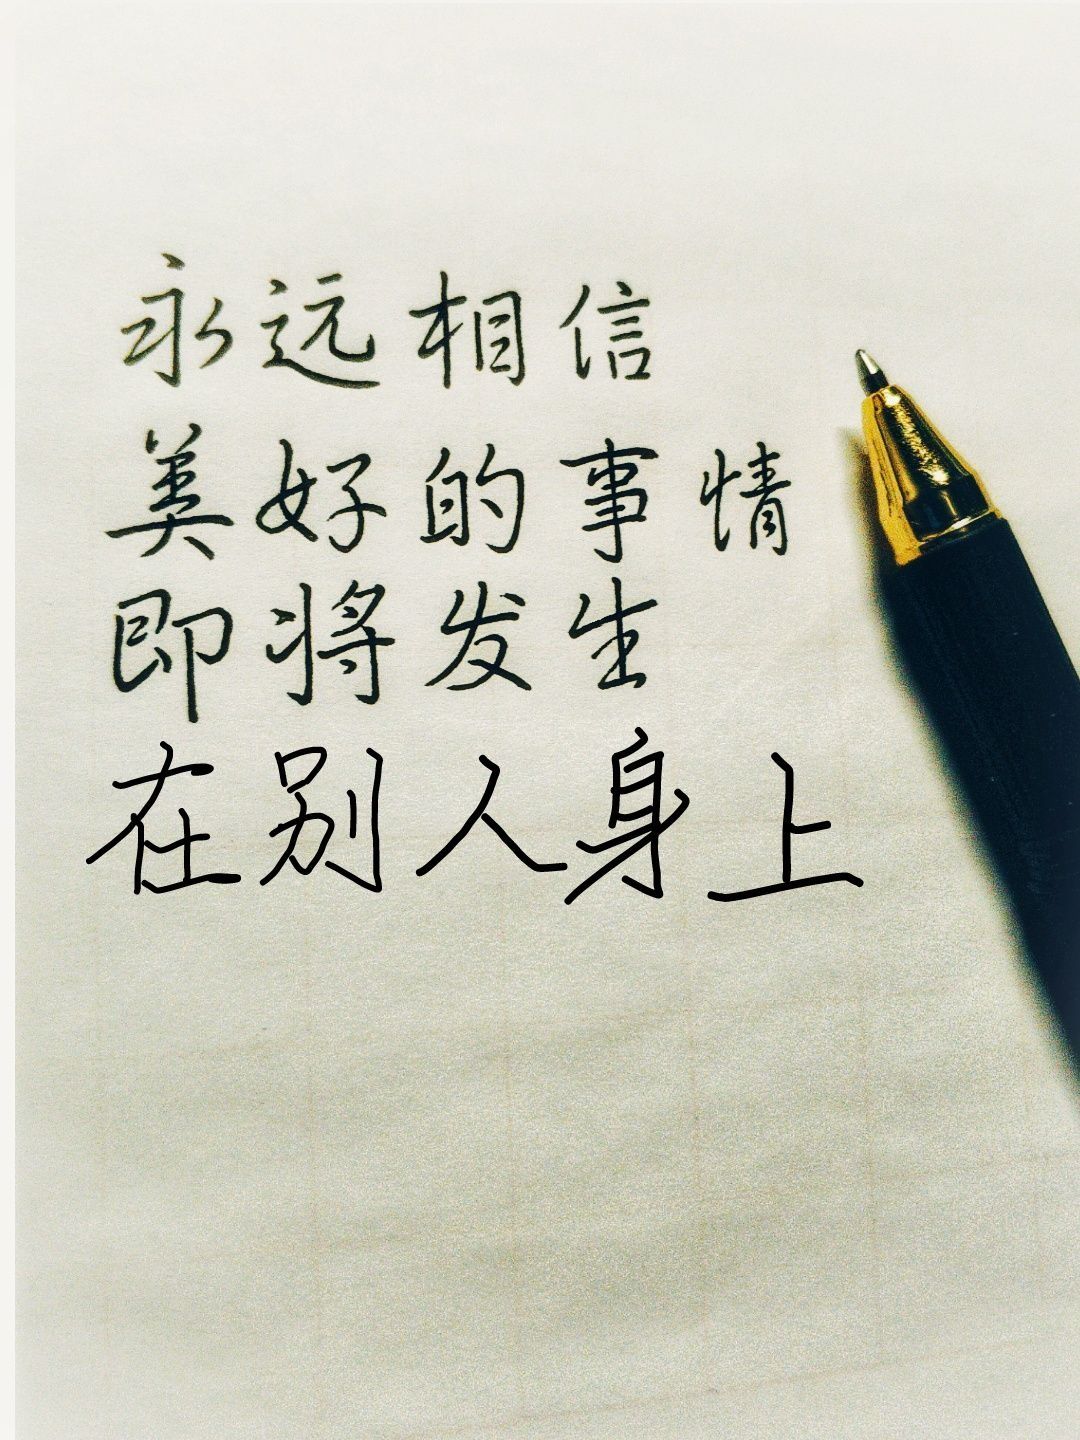 永远相信
美好的事情
即将发生
在别人身上